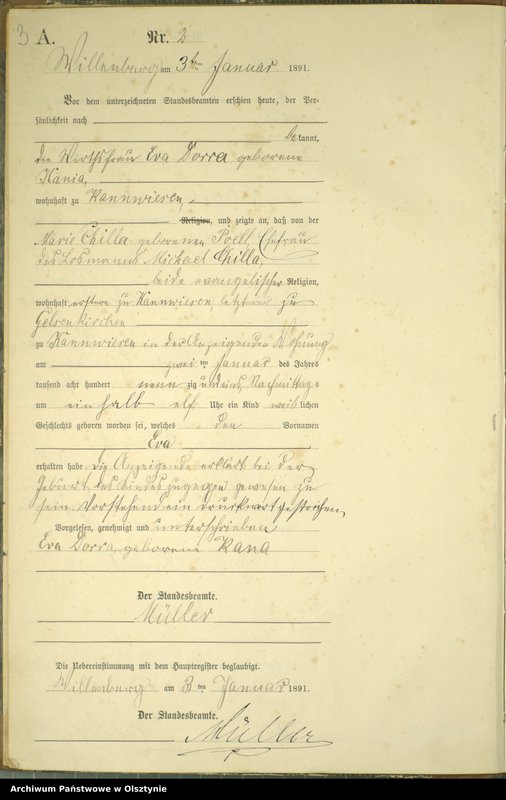 3 A. Nr. 2
Willenberg am 3ten Januar 1891.
Vor dem unterzeichneten Standesbeamten erschien heute, der Per-
sönlichkeit nach
bekannt,
die Wirthsfrau Eva Dorra geborene
Kania,
wohnhaft zu Kannwiesen,
Religion, und zeigte an, daß von der
Marie Chilla geborenen Ehefrau
des Losmanns Michael Chilla,
beide evangelischer Religion,
wohnhaft erstere zu Kannwiesen, letzterer zu
Gelsenkirchen
zu Kannwiesen in der Anzeigenden Wohnung
am zwei ten Januar des Jahres
tausend acht hundert neun zig und eins, Nachmittags
um ein halb elf Uhr ein Kind weiblichen
Geschlechts geboren worden sei, welches den Vornamen
Eva
erhalten habe. Die Anzeigende erklärt bei der
Geburt des Kindes zugegen gewesen zu
sein. Vorstehend ein Druckwort gestrichen.
Vorgelesen, genehmigt und unterschrieben
Eva Dorra, geborene Kana
Der Standesbeamte.
Müller
Die Uebereinstimmung mit dem Hauptregister beglaubigt.
Willenberg am 3 ten Januar 1891.
Der Standesbeamte.
Müller
Archiwum Państwowe w Olsztynie